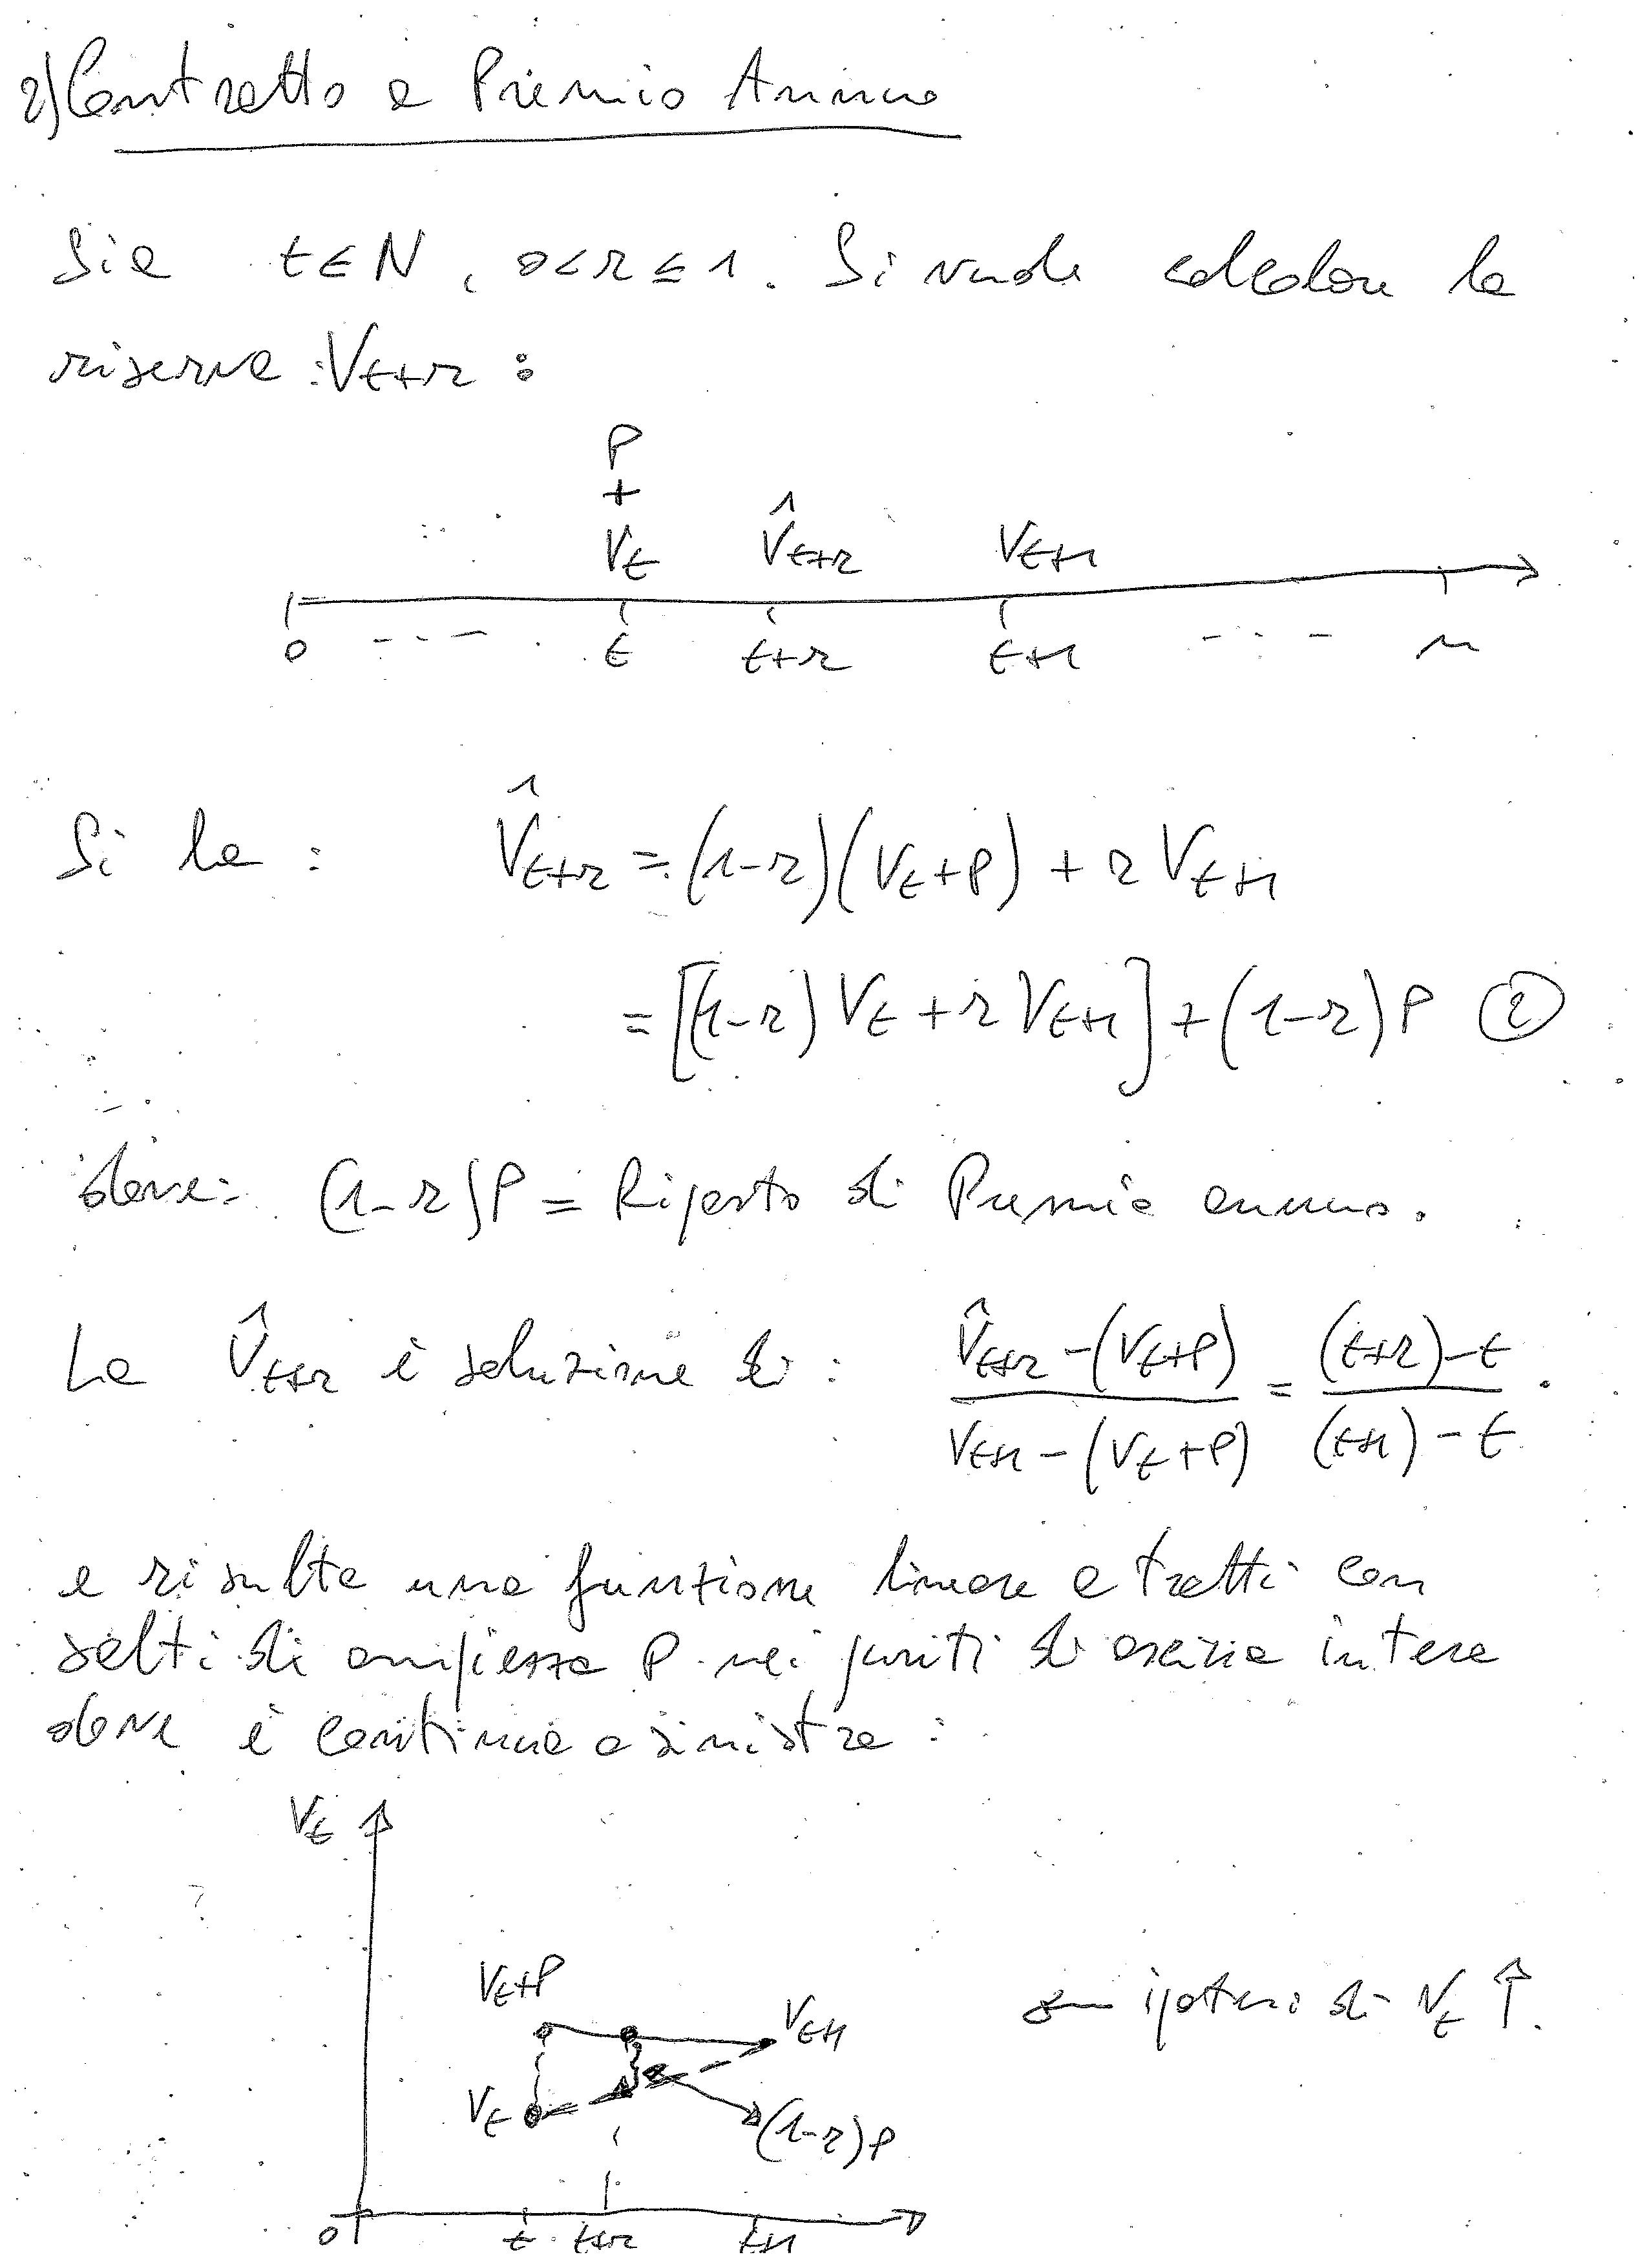 2) Contratto a Premio Annuo
Sia t∈N, 0<r≤1. Si vuole calcolare la
riserva: V_{t+r} :
P
+
V_t V̂_{t+r} V_{t+1}
0 ---- t t+r t+1 ---- n
Si ha : V̂_{t+r} = (1-r)(V_t+P) + r V_{t+1}
= [(1-r) V_t + r V_{t+1}] + (1-r)P ②
dove: (1-r)P = Riporto di Premio annuo.
La V̂_{t+r} è soluzione di : (V̂_{t+r} - (V_t+P)) / (V_{t+1} - (V_t+P)) = ((t+r)-t) / ((t+1)-t) .
e risulta una funzione lineare a tratti con
salti di ampiezza P nei punti di ascissa intera
dove è continua a sinistra :
V_t
V_t+P
V_{t+1}
ipotesi di V_t ↑.
V_t
(1-r)P
0 t t+r t+1